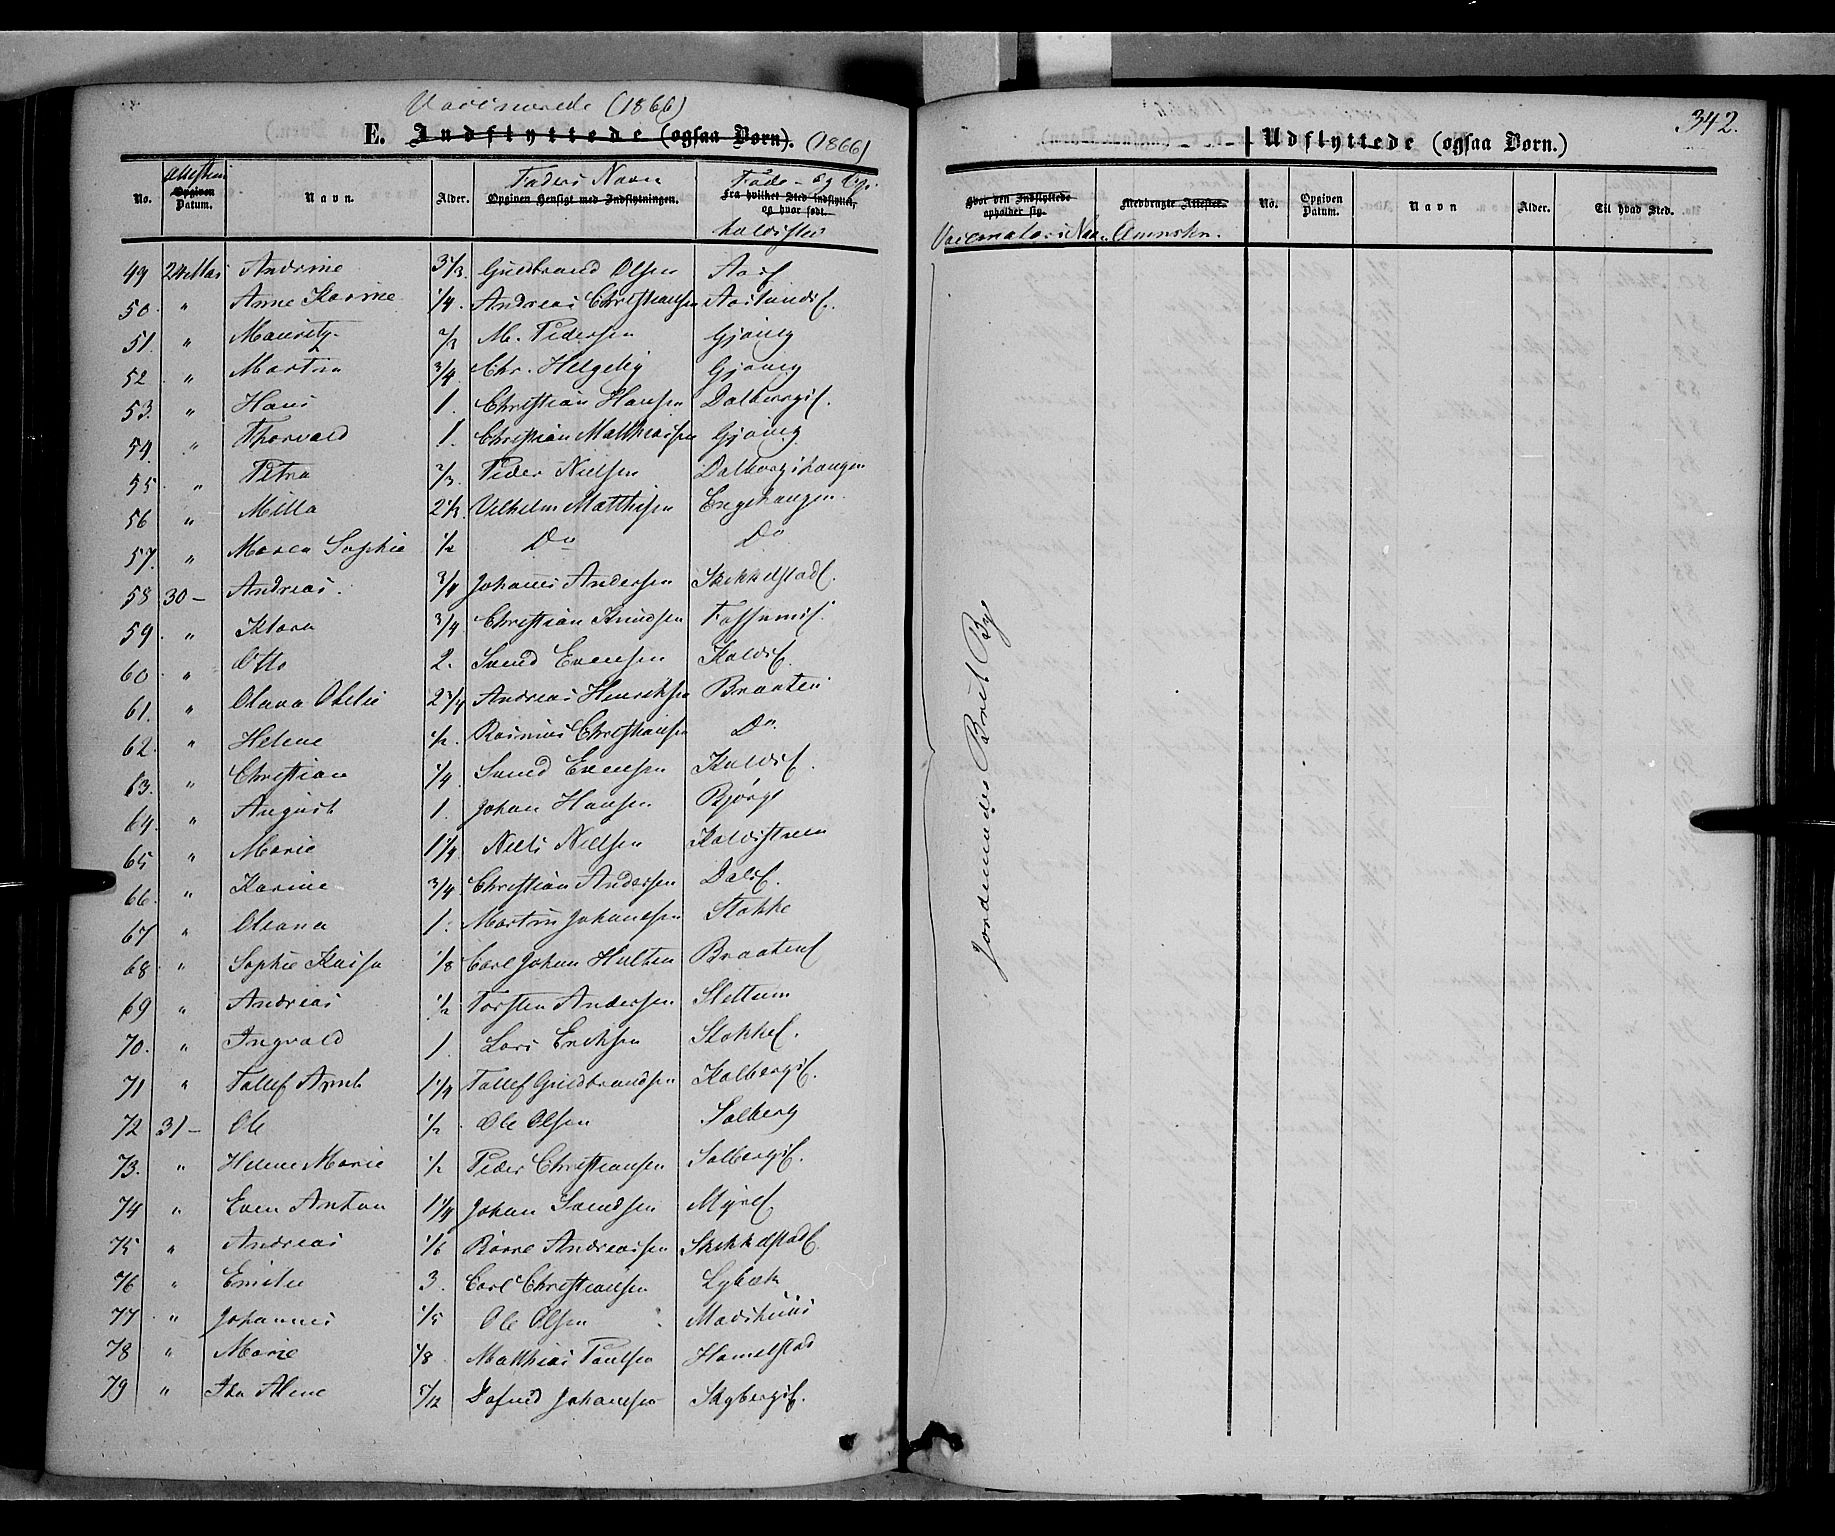 Vaccinerede (1866)
E. Indflyttede (ogsaa Børn). (1866)
No. Attestens Opgiven Datum. Navn. Alder. Faders Navn Opgiven Hensigt med Indflytningen. Føde- og Op- Fra hvilket Sted indflyttet, og hvor født. holdssted
49 24 Mai Andrine 3 1/3 Guldbrand Olsen Aas
50. " Anne Karine 1/4. Andreas Christiansen Aaslunds
51. " Mauritz 2/3 M. Pedersen Gjøvig
52 " Martin 3/4. Chr. Helgeby Gjøvig
53. " Hans 1. Christian Hansen Dalborgs
54. " Thorvald 1. Christian Matthiassen Gjøvig
55 " Petra 2/3. Peder Nielsen Dalborgshaugen
56 " Milla 2 1/3. Vilhelm Matthisen Engehaugen
57. " Maren Sophie 1/2 Do Do
58 30 - Andreas. 3/4 Johanes Andersen Skikkelstad
59. " Klara 3/4. Christian Knudsen
60 " Otto 2. Svend Evensen Kolds
61. " Olava Otelie 2 3/4 Andreas Henriksen Braaten
62. " Helene 1/2. Rasmus Christiansen Do
63. " Christian 1/4. Svend Evensen Kolds
64. " August 1. Johan Hansen Bjørge
65 " Marie 1 1/4 Niels Nielsen
66. " Karine 3/4 Christian Andersen Dals
67 " Oleana 1. Martin Johansen Stokke
68. " Sophie Kaisa 1/8 Carl Johan Hulten Braaten
69 " Andreas 1/2 Torsten Andersen Slettum
70. " Ingvald 1. Lars Eriksen Stokke
71 " Tollef Arnt 1 1/4 Tollef Guldbrandsen Kalbergs
72 31 - Ole 1/2 Ole Olsen Solberg
73. " Helene Marie 1/2 Peder Christiansen Solbergs
74 " Even Anton 1 1/4 Johan Svendsen Myre
75 " Andreas 1/6 Børre Andreassen Skikkelstad
76 " Emilie 3. Carl Christiansen Lybæk
77 " Johannes 1/5 Ole Olsen Madshuus
78 " Marie 1/8 Matthias Paulsen Hamelstad
79 " Ida Aline 5/12 Johansen Skybergs
342.
Udflyttede (ogsaa Børn.)
Hvor den Indflyttede opholder sig. Medbragte Attester. No. Opgiven Datum. Navn Alder. Til hvad Sted.
Vaccinatoris Navn Anmærkn.
Jordemoder Beret By